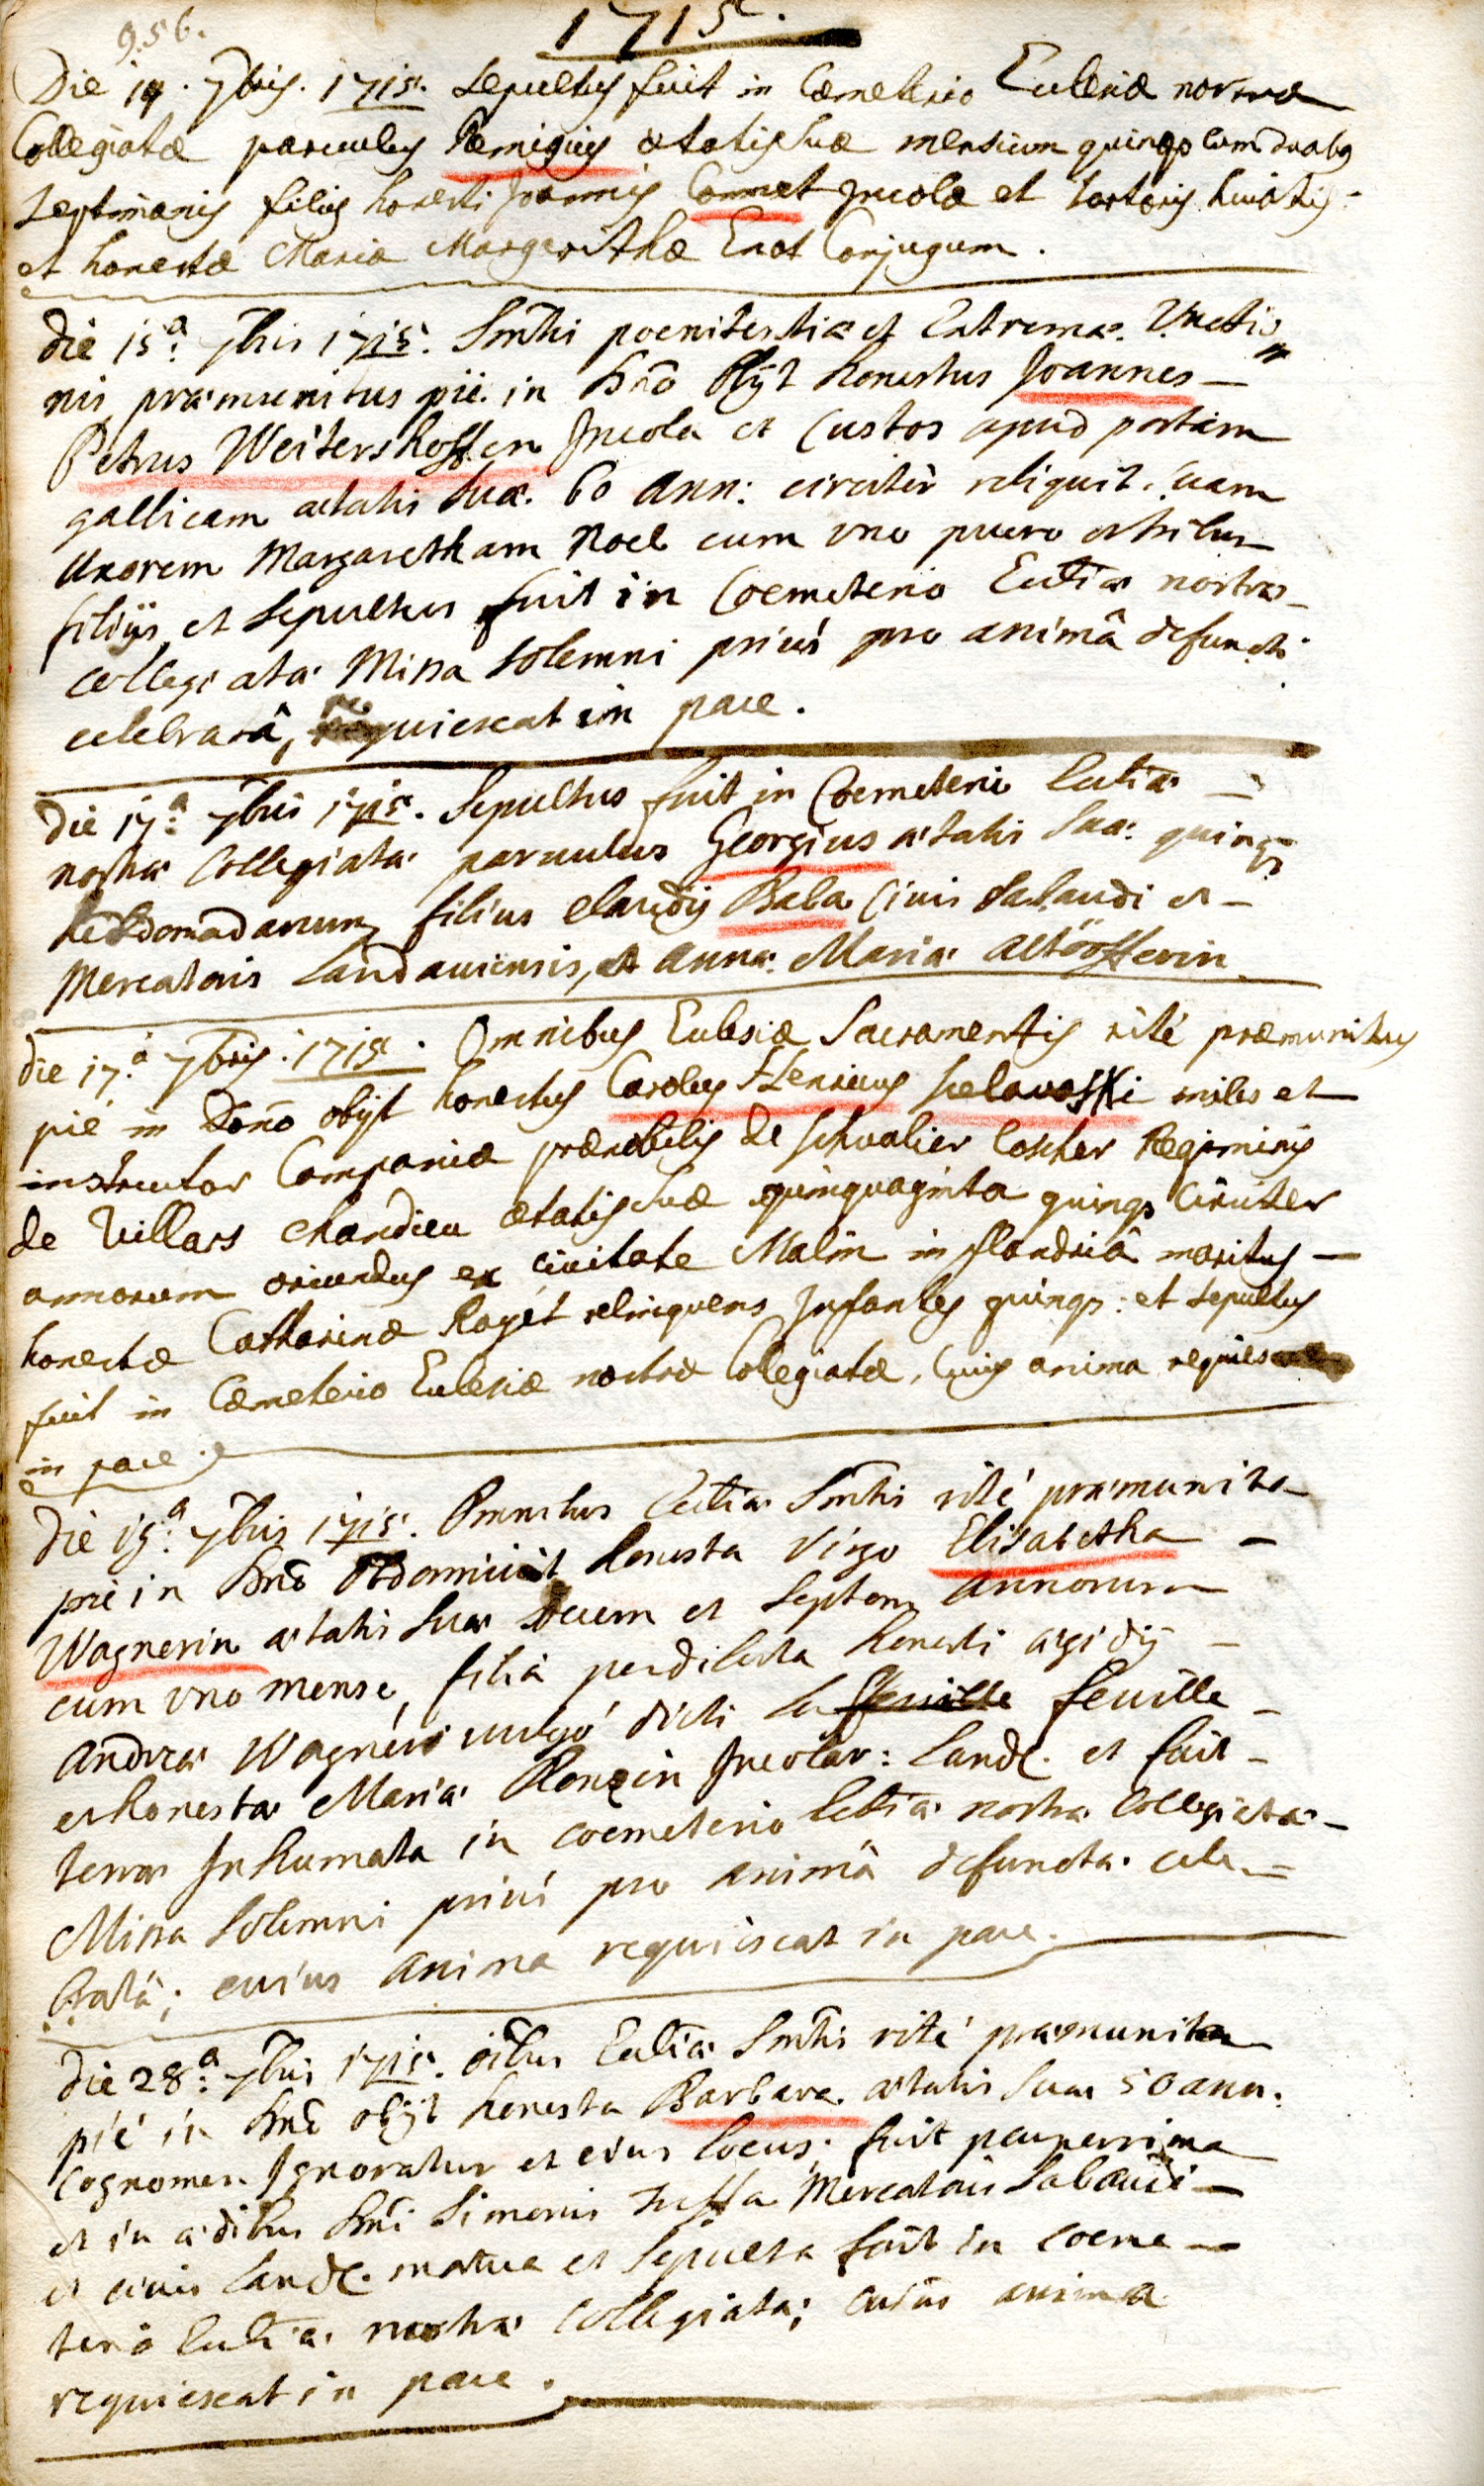 956.
1715.
Die 14. 7bris. 1715. sepultus fuit in Cœmeterio Ecclesiæ nostræ
Collegiatæ parvulus Remigius ætatis suæ mensium quinque cum duabus
septimanis filius honesti Joannis Connet Incolæ et sartoris huiatis
et honestæ Mariæ Margarithæ Enot Conjugum.
Die 15.a 7bris 1715. Smtis poenitentiæ et Extremæ. Unctio=
nis præmunitus pié in Dno Obijt honestus Joannes —
Petrus Weitershoffen Incola et Custos apud portam
gallicam ætatis suæ. 60 Ann: circiter reliquit suam
Uxorem Margaretham Noel cum uno puero et tribus
filiijs et Sepultus fuit in Coemeterio Ecclæ nostræ
collegiatæ Missa solemni priús pro animâ defuncti
celebratâ, requiescat in pace.
Die 17.a 7bris 1715. Sepultus fuit in Coemeterio Ecclæ —
nostræ Collegiatæ parvulus Georgius ætatis suæ quinque
hebdomadarum, filius claudij Bala Civis Sabaudi et —
Mercatoris Landaviensis, et Annæ Mariæ Altöofferin
Die 17.a 7bris. 1715. Omnibus Ecclesiæ Sacramentis rité præmunitus
pié in Dono obijt honestus Carolus Henricus Scelavaski miles et
instructor Companiæ prænobilis de schvalier Coscher Regiminis
de Villars chandieu ætatis suæ quinquaginta quinque Circiter
annorum oriundus ex civitate Malin in flandriâ maritus —
honestæ Catharinæ Rayét relinquens Infantes quinque: et sepultus
fuit in Cœmeterio Ecclesiæ nostræ Collegiatæ, Cuius anima requiescat
in pace.
Die 19.a 7bris 1715. Omnibus Ecclæ Smtis rité præmunita
pié in Dno Obdormivit honesta Virgo Elisabetha —
Wagnerin ætatis suæ decem et septem annorum
cum uno mense, filia perdilecta honesti ægidij —
Andreæ Wagnéri vulgó dicti la feuille feuille —
et honestæ Mariæ Renxin Incolar: Land. et fuit —
terræ Inhumata in coemeterio Ecclæ nostræ Collegiatæ —
Missa Solemni priús pro animâ defunctæ cele=
bratâ; cuius anima requiescat in pace.
Die 28.a 7bris 1715. oibus Ecclæ Smtis rité præmunita
pié in Dno obijt honesta Barbara ætatis suæ 50 ann.
Cognomen Ignoratur et eius locus; fuit pauperrima
et in ædibus Dni Simonis Mercatoris Sabaudi —
et civis Land. mortua et Sepulta fuit in coeme —
terio Ecclæ nostræ Collegiatæ; cuius anima
requiescat in pace.